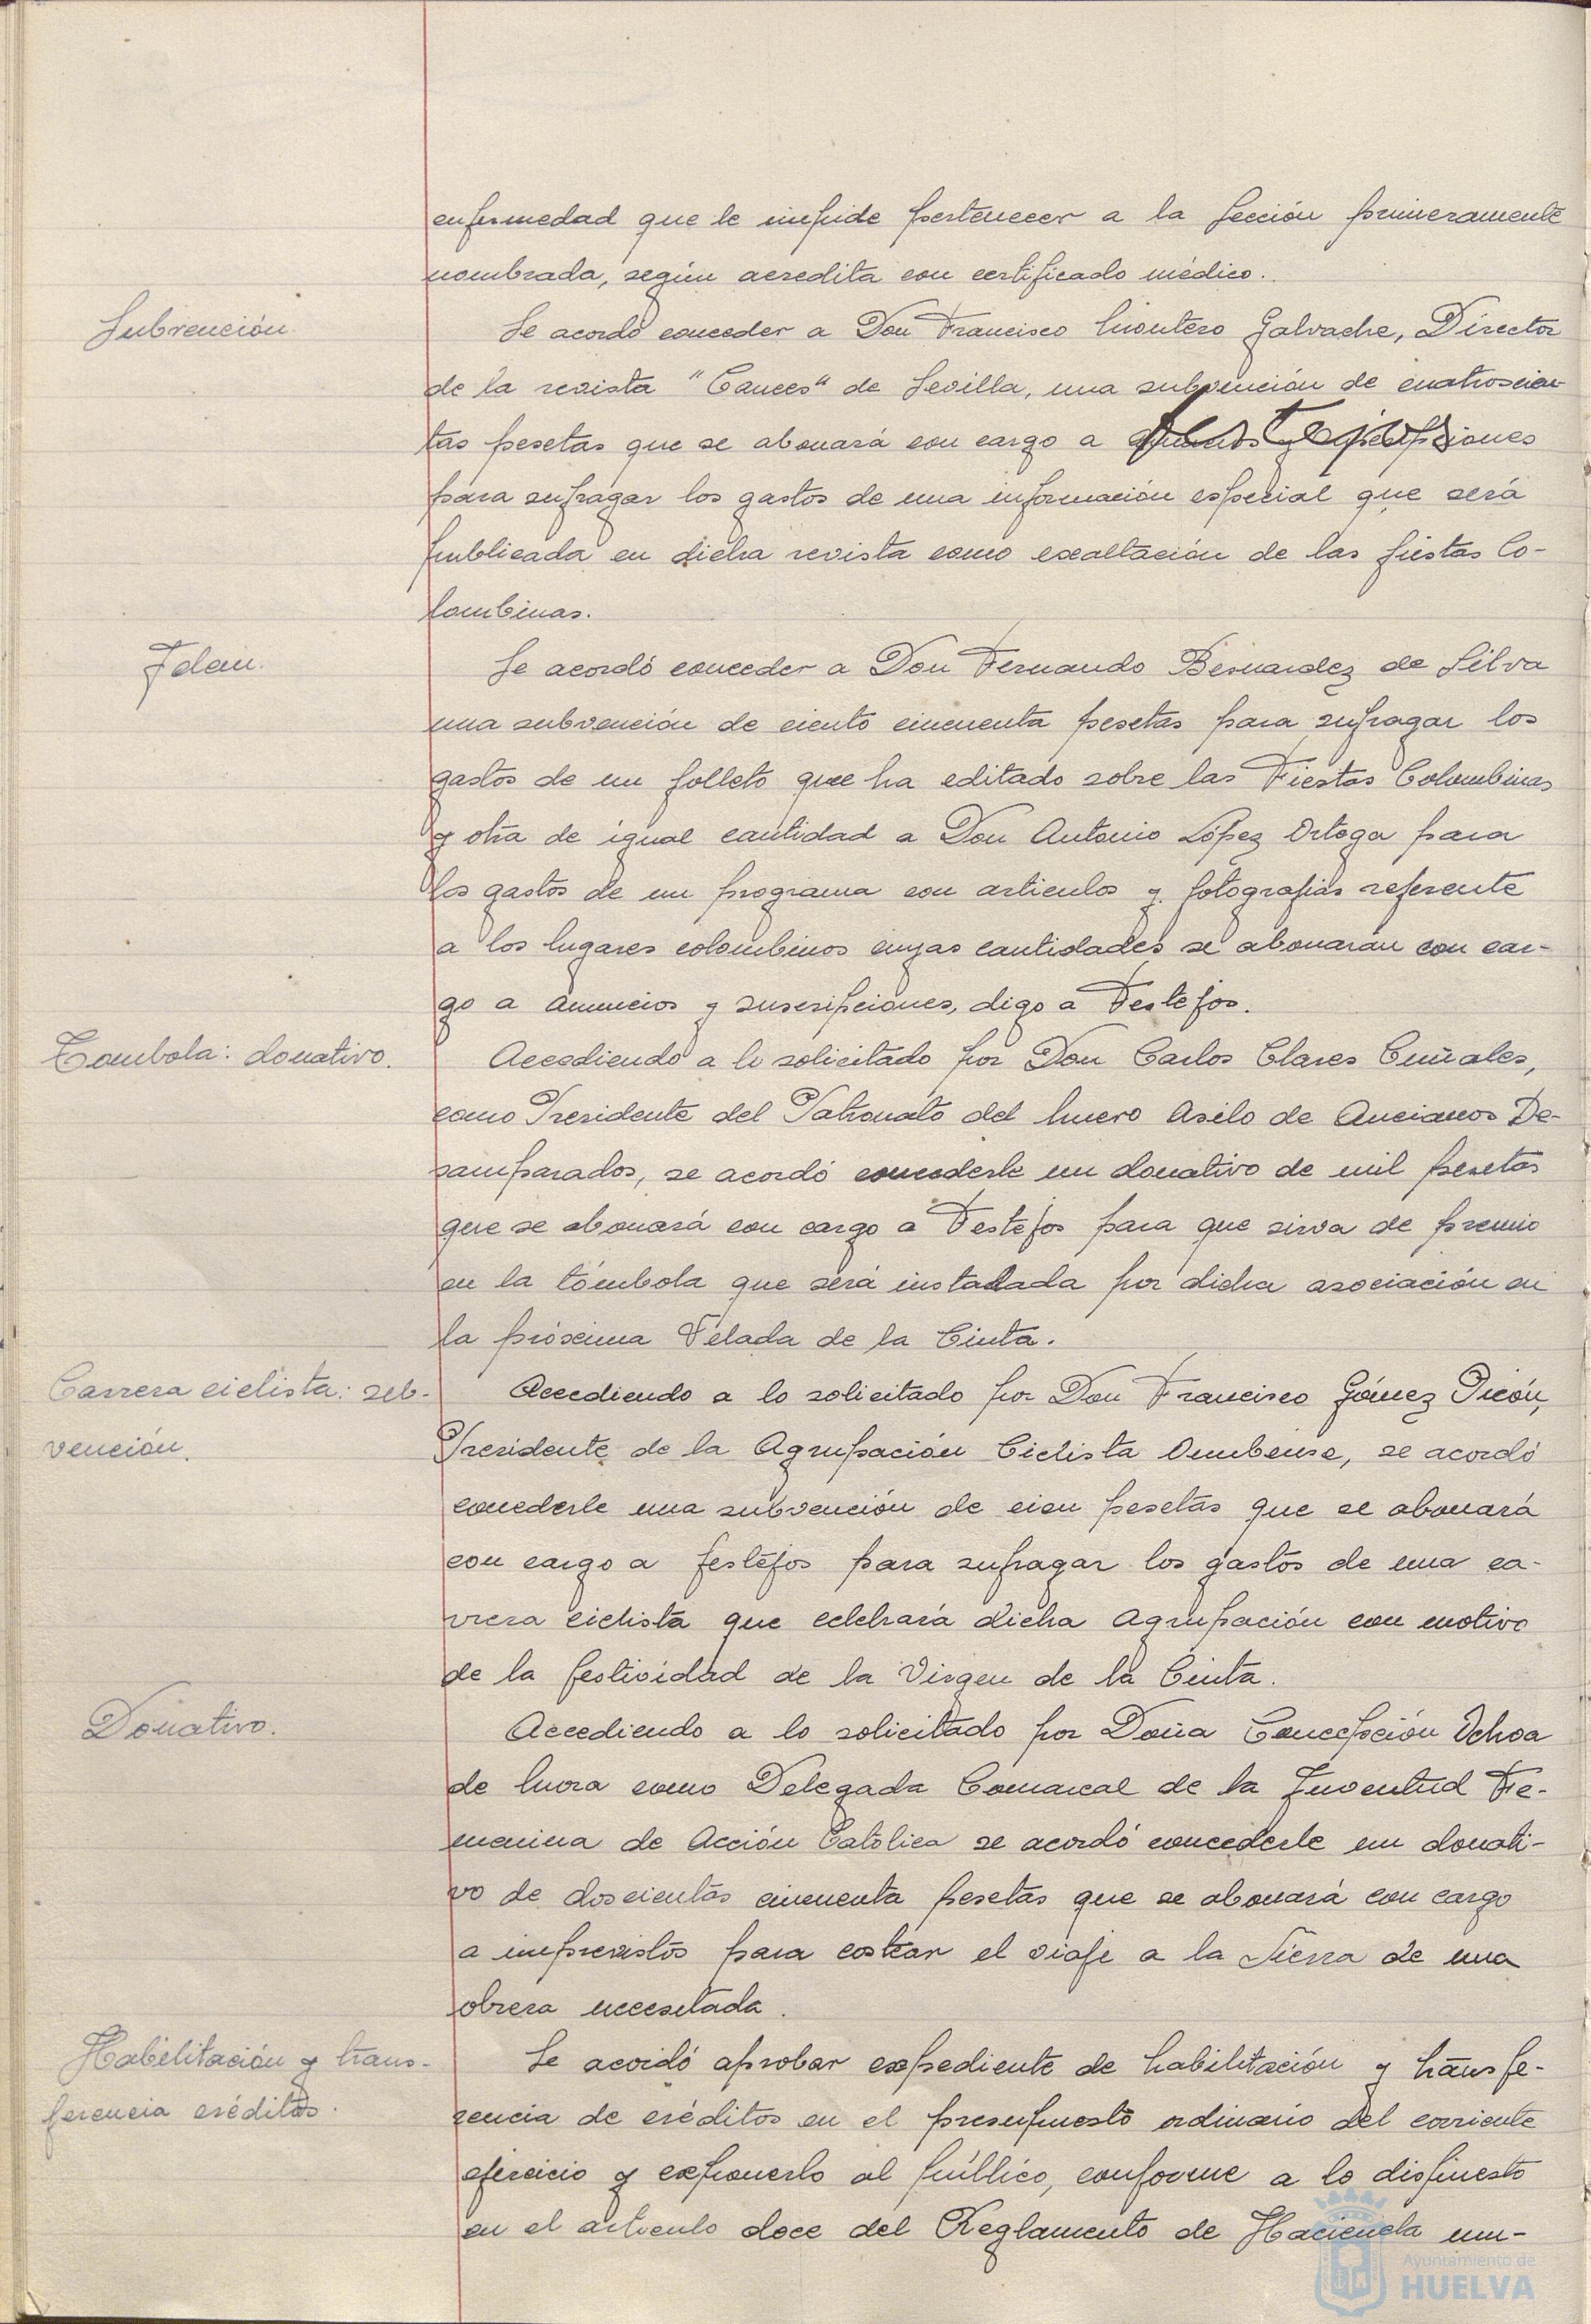 enfermedad que le impide pertenecer a la Sección primeramente
nombrada, según acredita con certificado médico.
Subvención.
Se acordó conceder a Don Francisco Montero Galvache, Director
de la revista "Cauces" de Sevilla, una subvención de cuatroscien-
tas pesetas que se abonará con cargo a festejos
para sufragar los gastos de una información especial que será
publicada en dicha revista como exaltación de las fiestas Co-
lombinas.
Idem.
Se acordó conceder a Don Fernando Bernardez de Silva
una subvención de ciento cincuenta pesetas para sufragar los
gastos de un folleto que ha editado sobre las Fiestas Colombinas
y otra de igual cantidad a Don Antonio López Ortega para
los gastos de un programa con articulos y fotografias referente
a los lugares colombinos cuyas cantidades se abonarán con car-
go a anuncios y suscripciones, digo a Festejos.
Tombola: donativo.
Accediendo a lo solicitado por Don Carlos Clares Cuñales,
como Presidente del Patronato del Nuevo Asilo de Ancianos De-
samparados, se acordó concederle un donativo de mil pesetas
que se abonará con cargo a Festejos para que sirva de premio
en la tómbola que será instalada por dicha asociación en
la próxima Velada de la Cinta.
Carrera ciclista: sub-
vención.
Accediendo a lo solicitado por Don Francisco Gómez Picón,
Presidente de la Agrupación Ciclista Onubense, se acordó
concederle una subvención de cien pesetas que se abonará
con cargo a festejos para sufragar los gastos de una ca-
rrera ciclista que celebrará dicha Agrupación con motivo
de la festividad de la Virgen de la Cinta.
Donativo.
Accediendo a lo solicitado por Doña Concepción Ochoa
de Mora como Delegada Comarcal de la Juventud Fe-
menina de Acción Católica se acordó concederle un donati-
vo de doscientas cincuenta pesetas que se abonará con cargo
a imprevistos para costear el viaje a la Sierra de una
obrera necesitada.
Habilitación y trans-
ferencia créditos.
Se acordó aprobar expediente de habilitación y transfe-
rencia de créditos en el presupuesto ordinario del corriente
ejercicio y exponerlo al público, conforme a lo dispuesto
en el articulo doce del Reglamento de Hacienda mu-
Ayuntamiento de
HUELVA